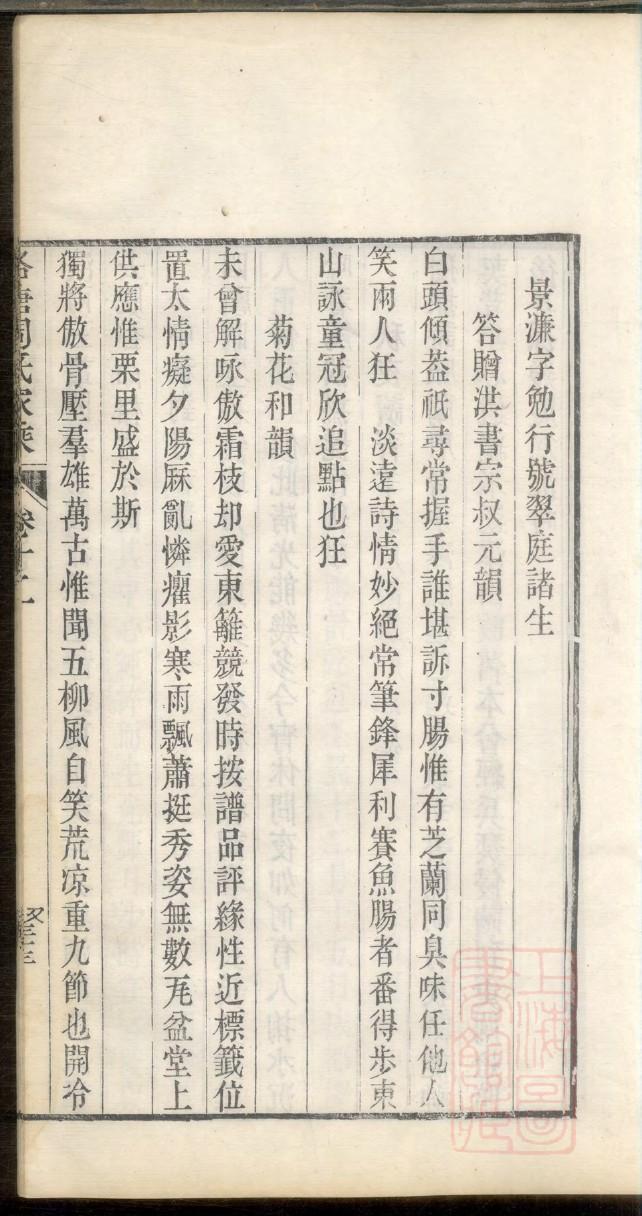 景濂字勉行號翠庭諸生
答贈洪書宗叔元韻
白頭傾蓋祇尋常握手誰堪訴寸腸惟有芝蘭同臭味任他人
笑兩人狂　淡遠詩情妙絕常筆鋒犀利賽魚腸者番得步東
山詠童冠欣追點也狂
菊花和韻
未曾解咏傲霜枝却愛東籬競發時按譜品評緣性近標籤位
置太情癡夕陽厤亂憐癯影寒雨飄蕭挺秀姿無數瓦盆堂上
供應惟栗里盛於斯
獨將傲骨壓羣雄萬古惟聞五柳風自笑荒凉重九節也開冷
周氏家乘
卷十二
上海圖書館藏